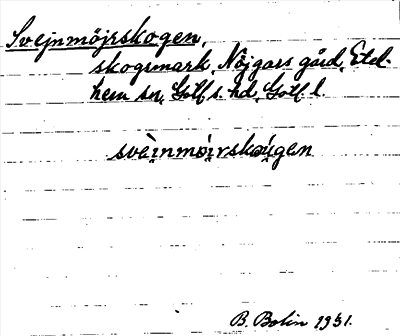 Svejnmöjrskogen,
skogsmark, Nöjgårs gård, Etel-
hem sn, Gotl s. hd, Gotl l.
svèi̯nmøi̯rskóu̯gen
B. Bolin 1931.